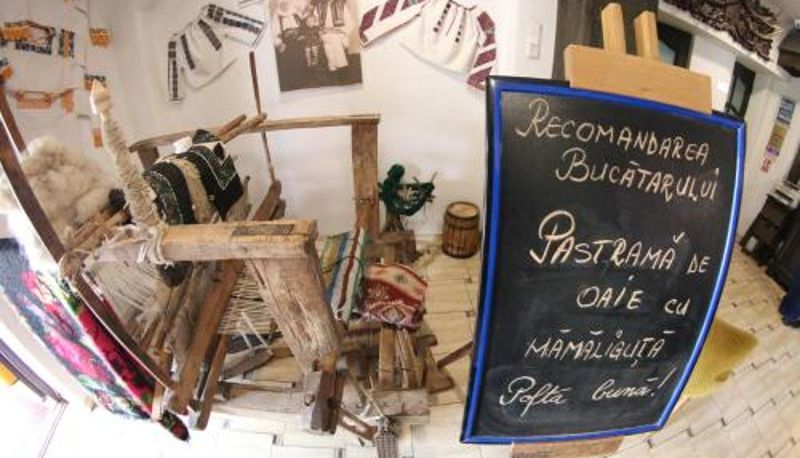 RECOMANDAREA
BUCĂTARULUI
PASTRAMĂ DE
OAIE CU
MĂMĂLIGUȚĂ
Poftă bună!